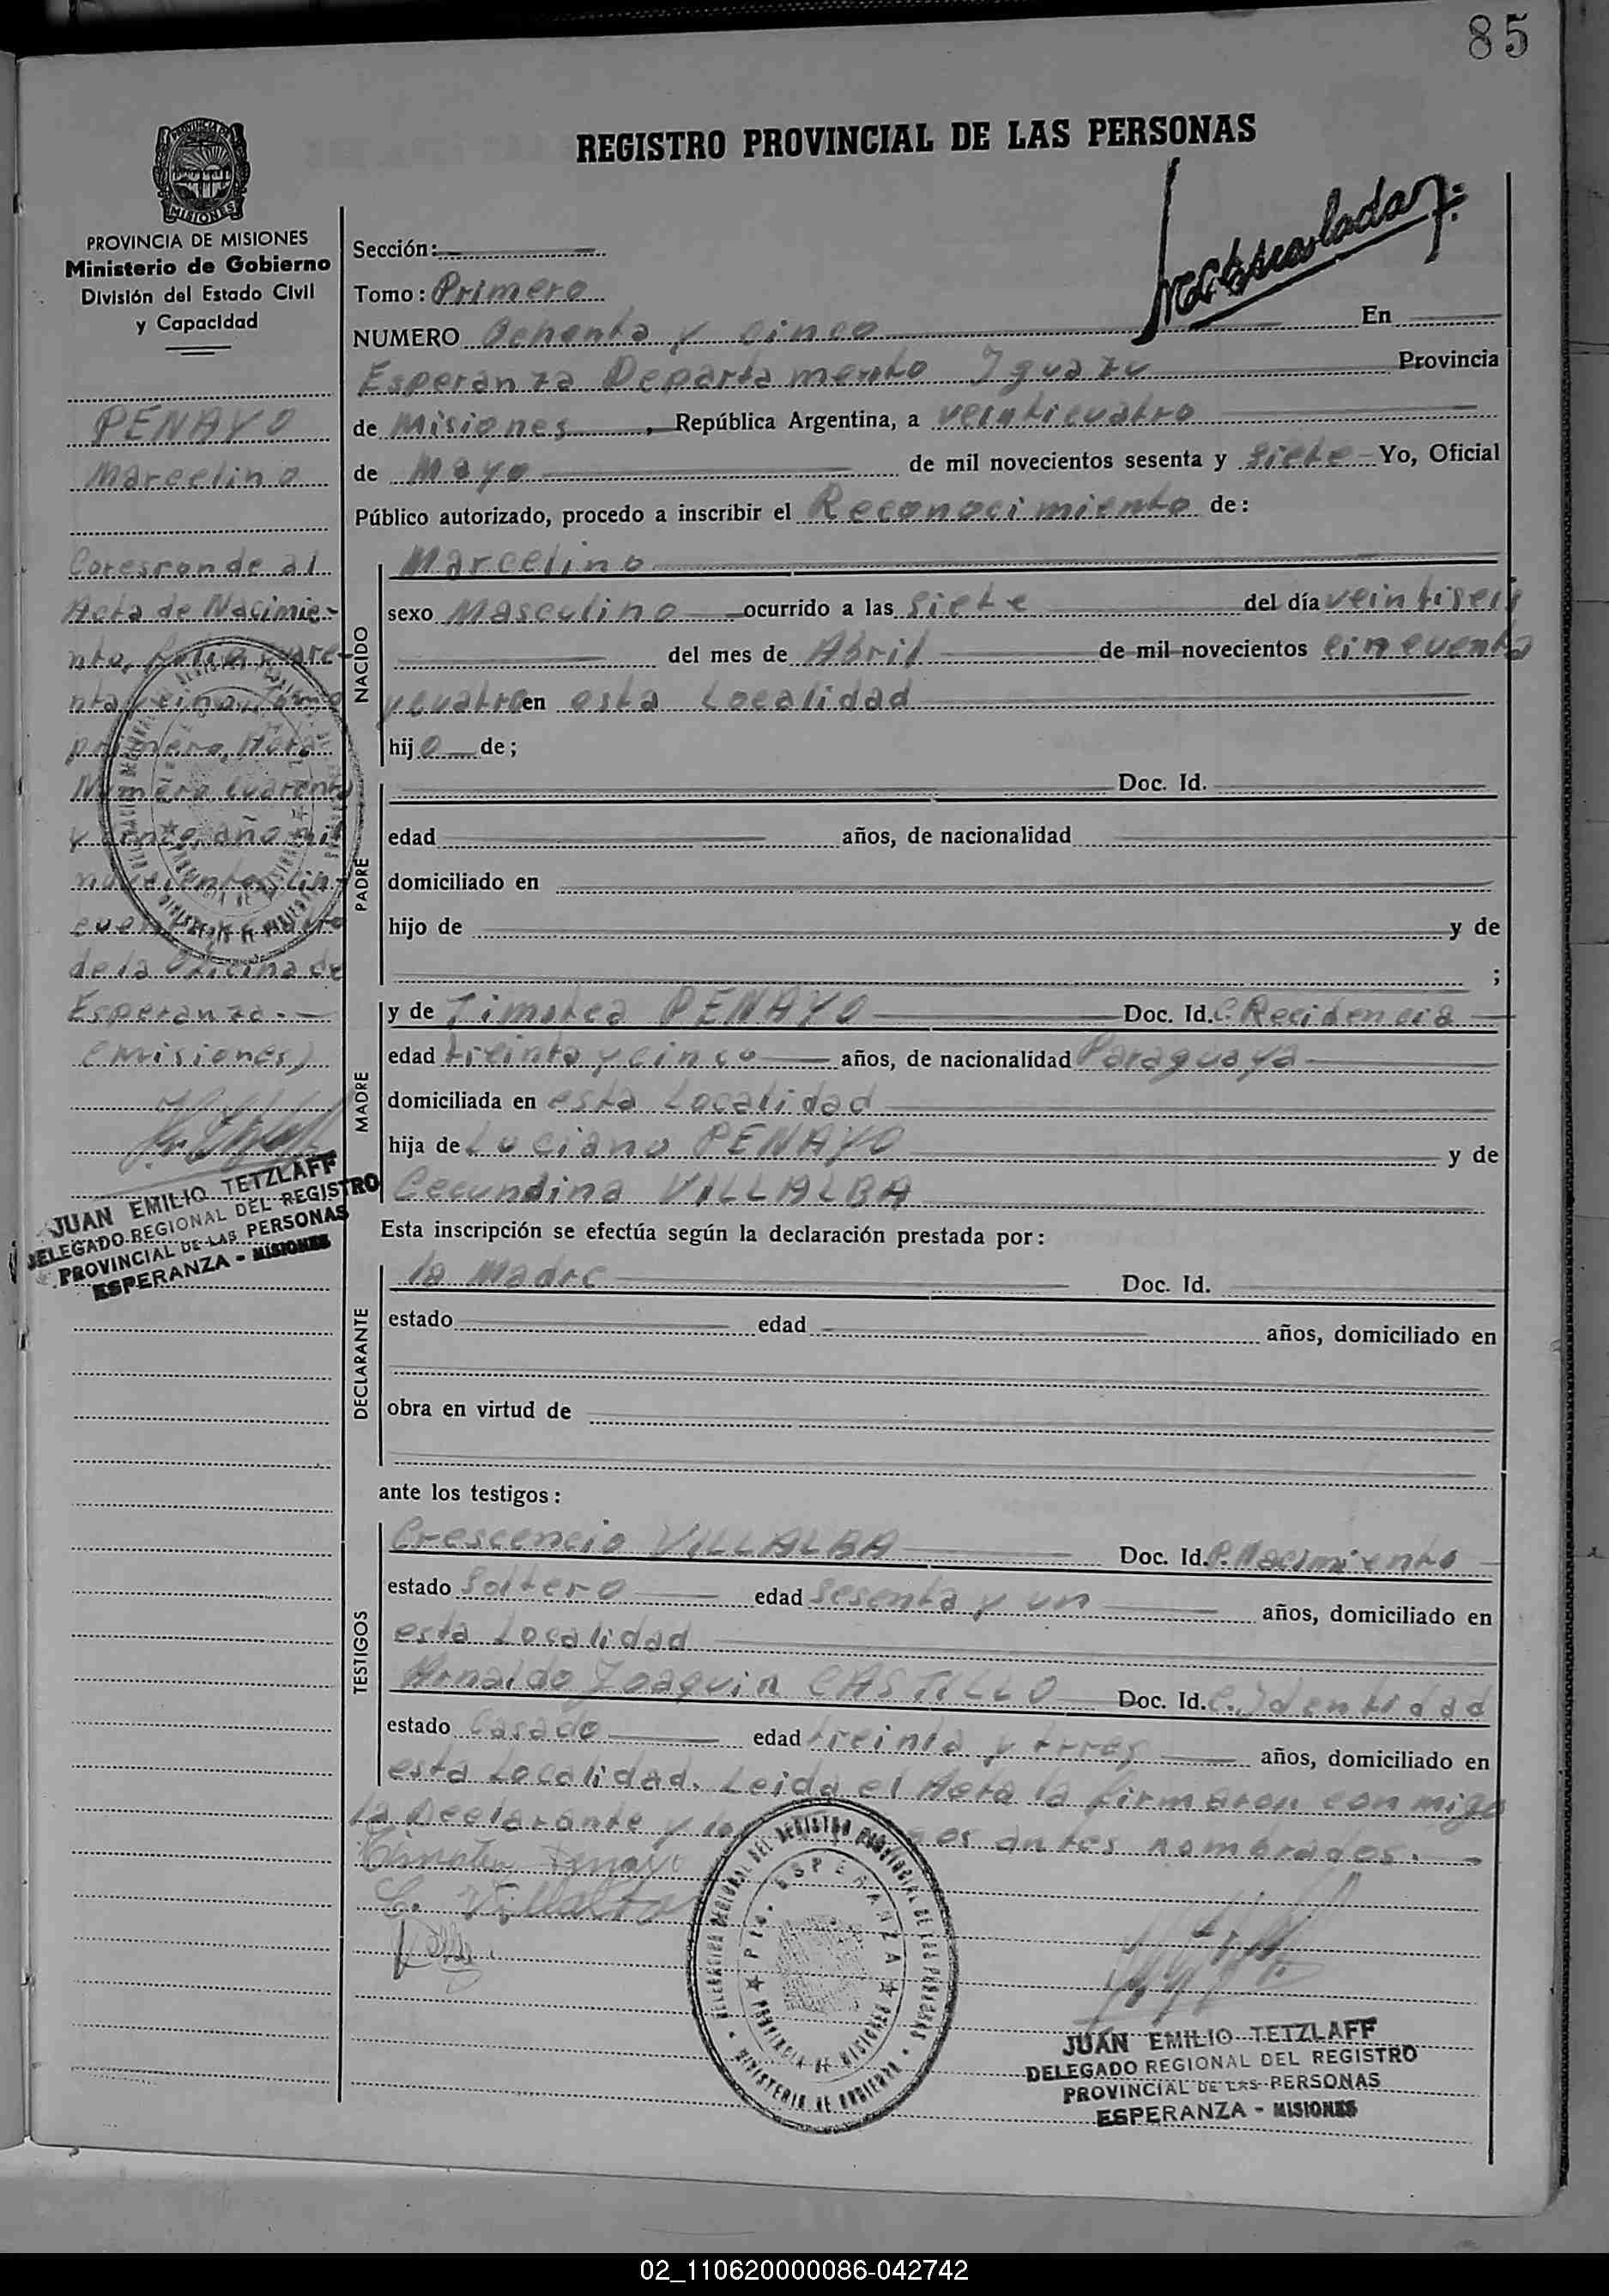 85
REGISTRO PROVINCIAL DE LAS PERSONAS
PROVINCIA DE
MISIONES
PROVINCIA DE MISIONES
Ministerio de Gobierno
División del Estado Civil
y Capacidad
PENAYO
Marcelino
Coresponde al
Acta de Nacimie-
nto, folio cuare-
nta y cinco, Tomo
primero, Acta
Numero cuarenta
y cinco, año mil
novecientos cin-
cuenta y cuatro
de la Oficina de
Esperanza.-
(Misiones)
JUAN EMILIO TETZLAFF
DELEGADO REGIONAL DEL REGISTRO
PROVINCIAL DE LAS PERSONAS
ESPERANZA - MISIONES
Sección:
Tomo: Primero
NUMERO Ochenta y cinco En
Esperanza Departamento Iguazu Provincia
de Misiones, República Argentina, a veinticuatro
de Mayo de mil novecientos sesenta y siete Yo, Oficial
Público autorizado, procedo a inscribir el Reconocimiento de:
NACIDO
Marcelino
sexo Masculino ocurrido a las siete del día veintiseis
del mes de Abril de mil novecientos cincuenta
y cuatro en esta Localidad
hijo de;
PADRE
Doc. Id.
edad años, de nacionalidad
domiciliado en
hijo de y de
;
MADRE
y de Timotea PENAYO Doc. Id. C Recidencia
edad treinta y cinco años, de nacionalidad Paraguaya
domiciliada en esta Localidad
hija de Luciano PENAYO y de
Cecundina VILLALBA
Esta inscripción se efectúa según la declaración prestada por:
DECLARANTE
la Madre Doc. Id.
estado edad años, domiciliado en
obra en virtud de
ante los testigos:
TESTIGOS
Crescencio VILLALBA Doc. Id. P. Nacimiento
estado Soltero edad sesenta y un años, domiciliado en
esta Localidad
Arnaldo Joaquin CASTILLO Doc. Id. C. Identidad
estado Casado edad treinta y trres años, domiciliado en
esta Localidad. Leida el Acta la firmaron conmigo
la Declarante y antes nombrados.-
Timotea Penayo
C. Villalba
DELEGACION REGIONAL DEL REGISTRO PROVINCIAL DE LAS PERSONAS
Pto. ESPERANZA
PROVINCIA DE MISIONES
MINISTERIO DE GOBIERNO
JUAN EMILIO TETZLAFF
DELEGADO REGIONAL DEL REGISTRO
PROVINCIAL DE LAS PERSONAS
ESPERANZA - MISIONES
02_110620000086-042742